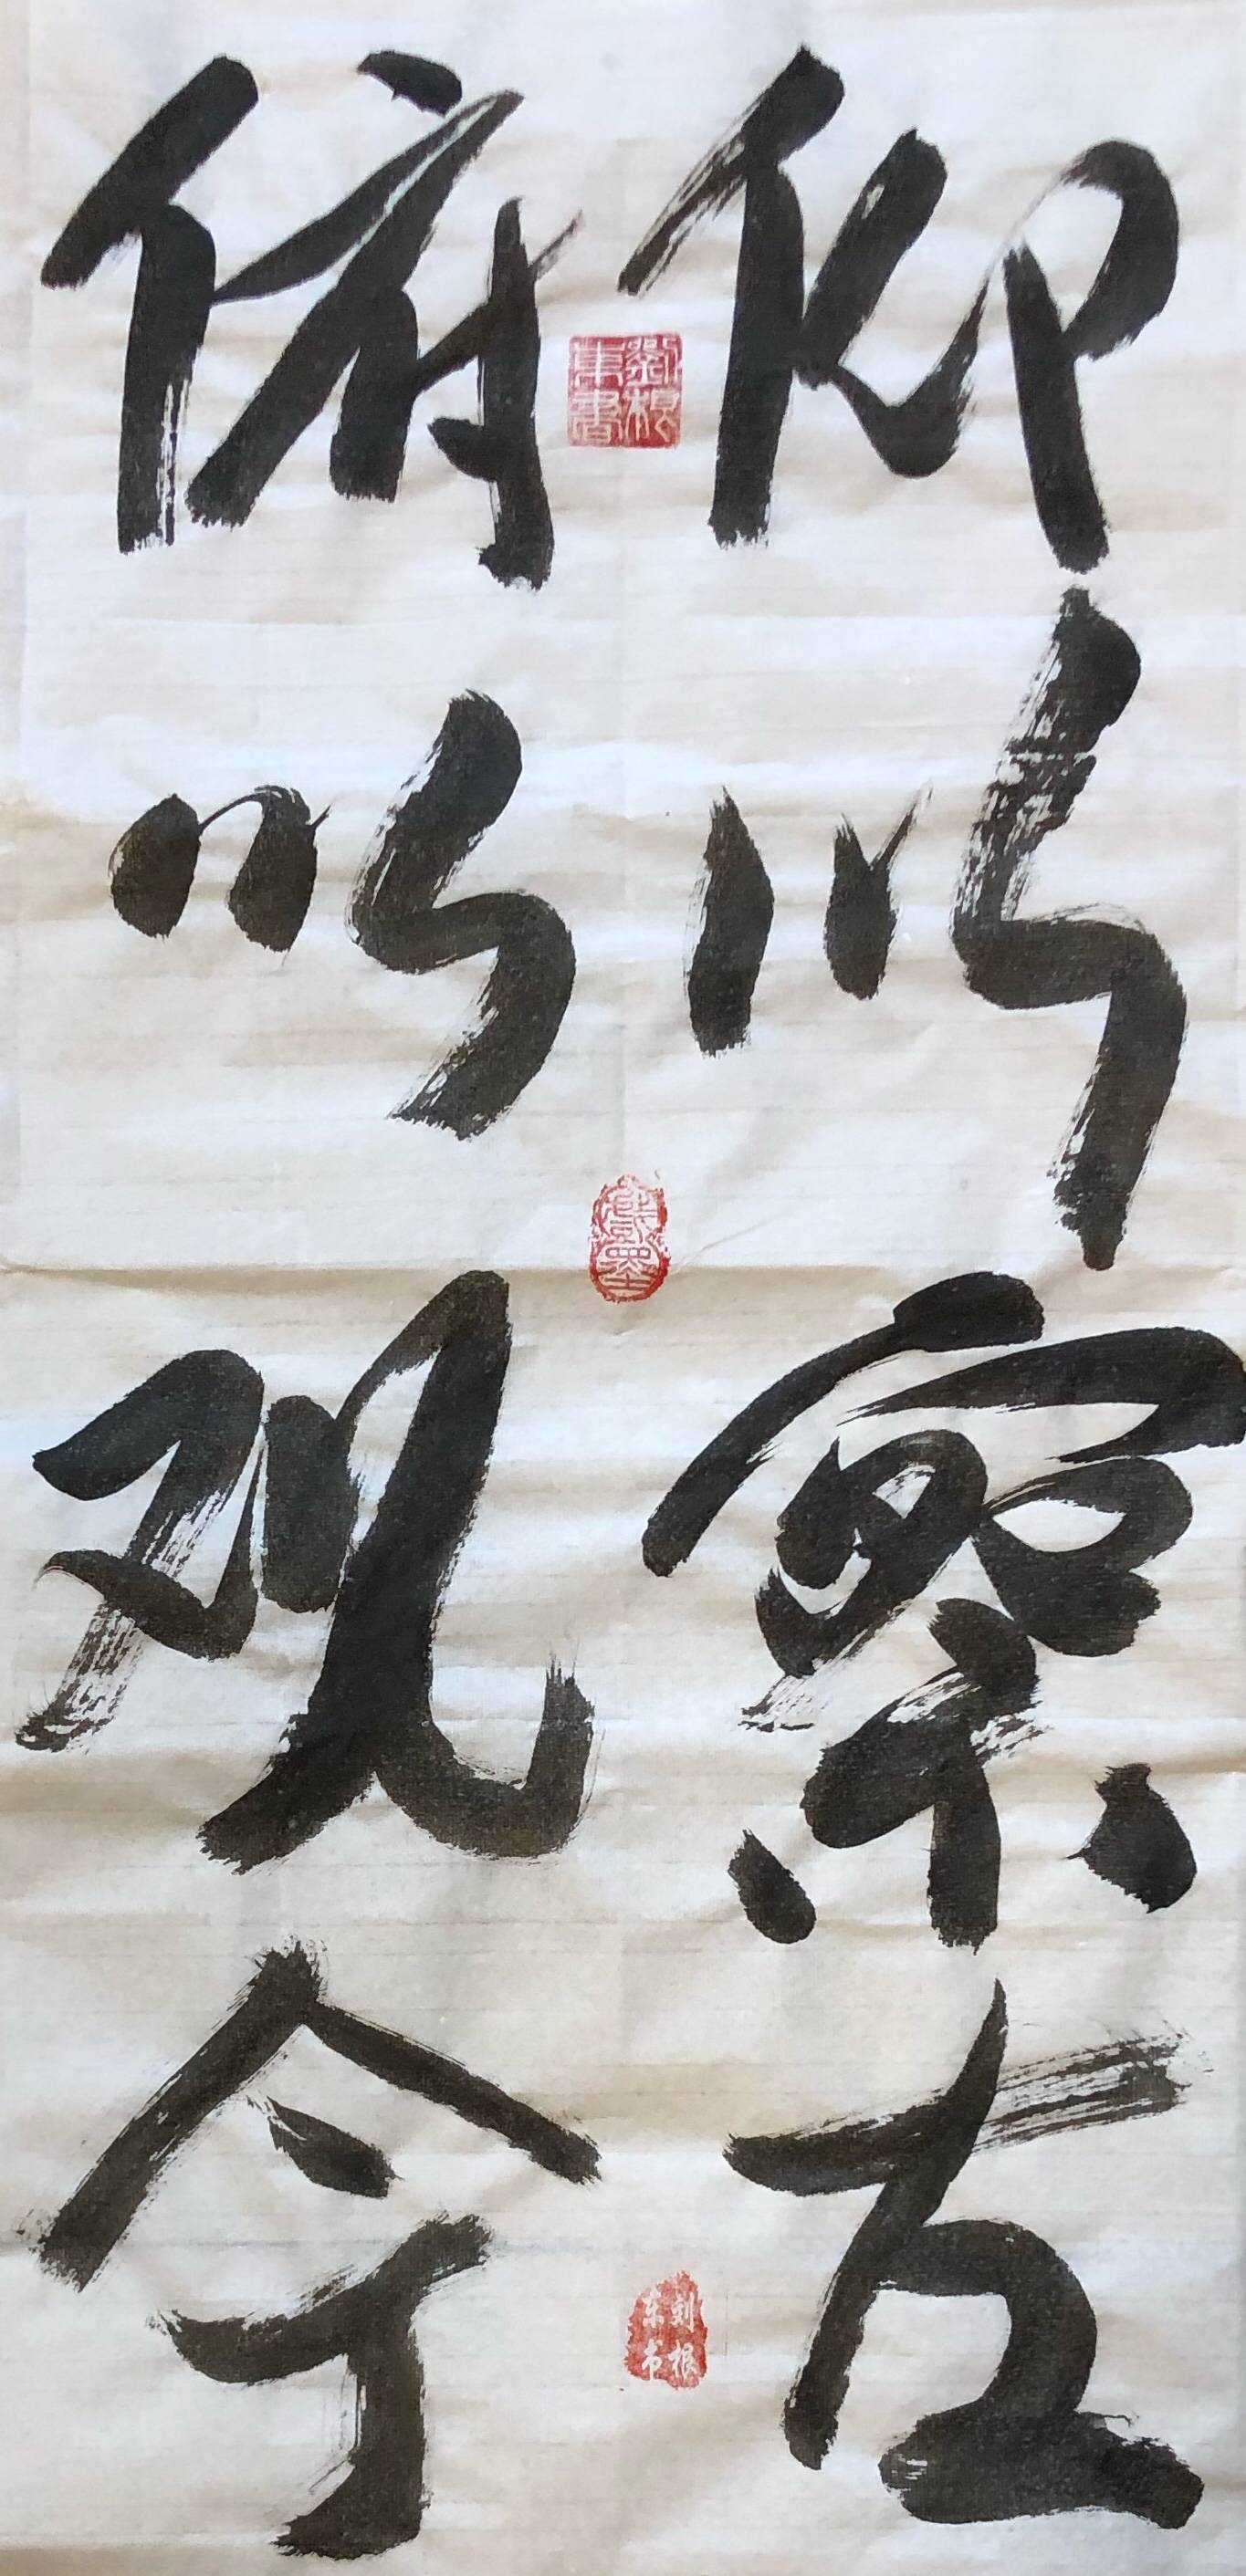 仰以察古
俯以观今
劉根東書
刘根东书